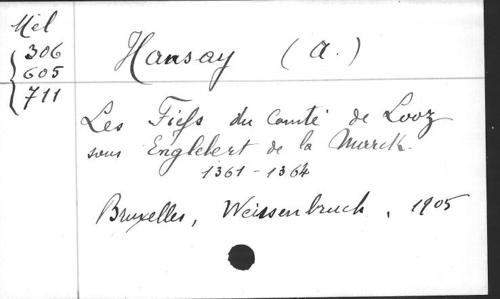 Mél
306
605
711
Hansay (A.)
Les Fiefs du Comté de Looz
sous Englebert de la Marck.
1361-1364
Bruxelles, Weissenbruch, 1905